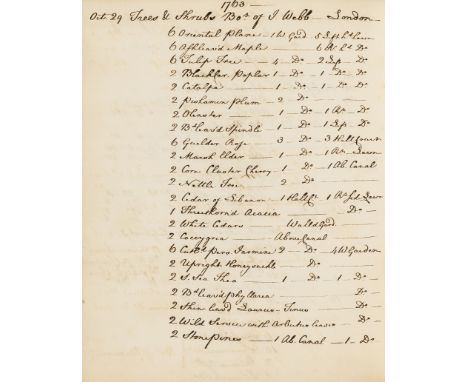 1763 —
Oct. 29 Trees & Shrubs Bot. of J Webb — London —
6 Oriental Plane 1 Wd Gard
6 Ashleavd Maple — Do
6 Tulip Tree — 4 — Do — 2 — Do
2 Black Poplar 1 — Do — 1 — Do — Do
2 Catalpa — 1 — Do — 1 — Do — Do
2 Pishamin Plum — 2 — Do
2 Oleaster — 1 — Do — 1 — Do
2 Bd leavd Spindle 1 — Do — 1 — Do
6 Guelder Rose — 3 — Do — 3 Hall Court
2 Marsh Elder — 1 — Do — 1
2 Corn Cluster Cherry — 1 — Do — 1 Ab. Canal
2 Nettle Tree — 2 — Do
2 Cedar of Libanon 1 Hall Ct 1
1 Three thornd Acacia — Do —
2 White Cedars — Walld Gard
2 Coccygria — Above Canal
6 Jasmine 2 — Do — 4 W Garden
2 Upright Honeysuckle — Do —
2 S. Sea Thea — 1 — Do — 1 — Do
2 Bd leavd phyllarea — Do
2 Shin leavd — Do
2 Wild Service with Arbutus leaves — Do
2 Stone Pines — 1 Ab. Canal — 1 — Do